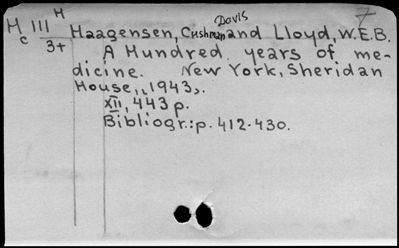 H III H Haagensen, Cushman Davis and Lloyd, W.E.B.
c 3+ A Hundred years of me-
dicine. New York, Sheridan
House, 1943.
XII, 443 p.
Bibliogr.: p. 412-430.